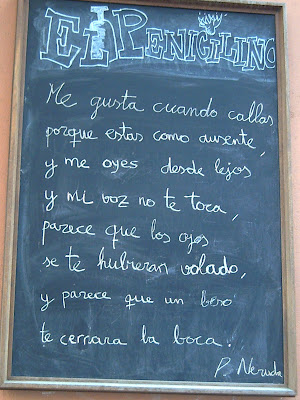 El Penicilino
Me gusta cuando callas
porque estas como ausente,
y me oyes desde lejos
y mi voz no te toca,
parece que los ojos
se te hubieran volado,
y parece que un beso
te cerrara la boca.
P. Neruda